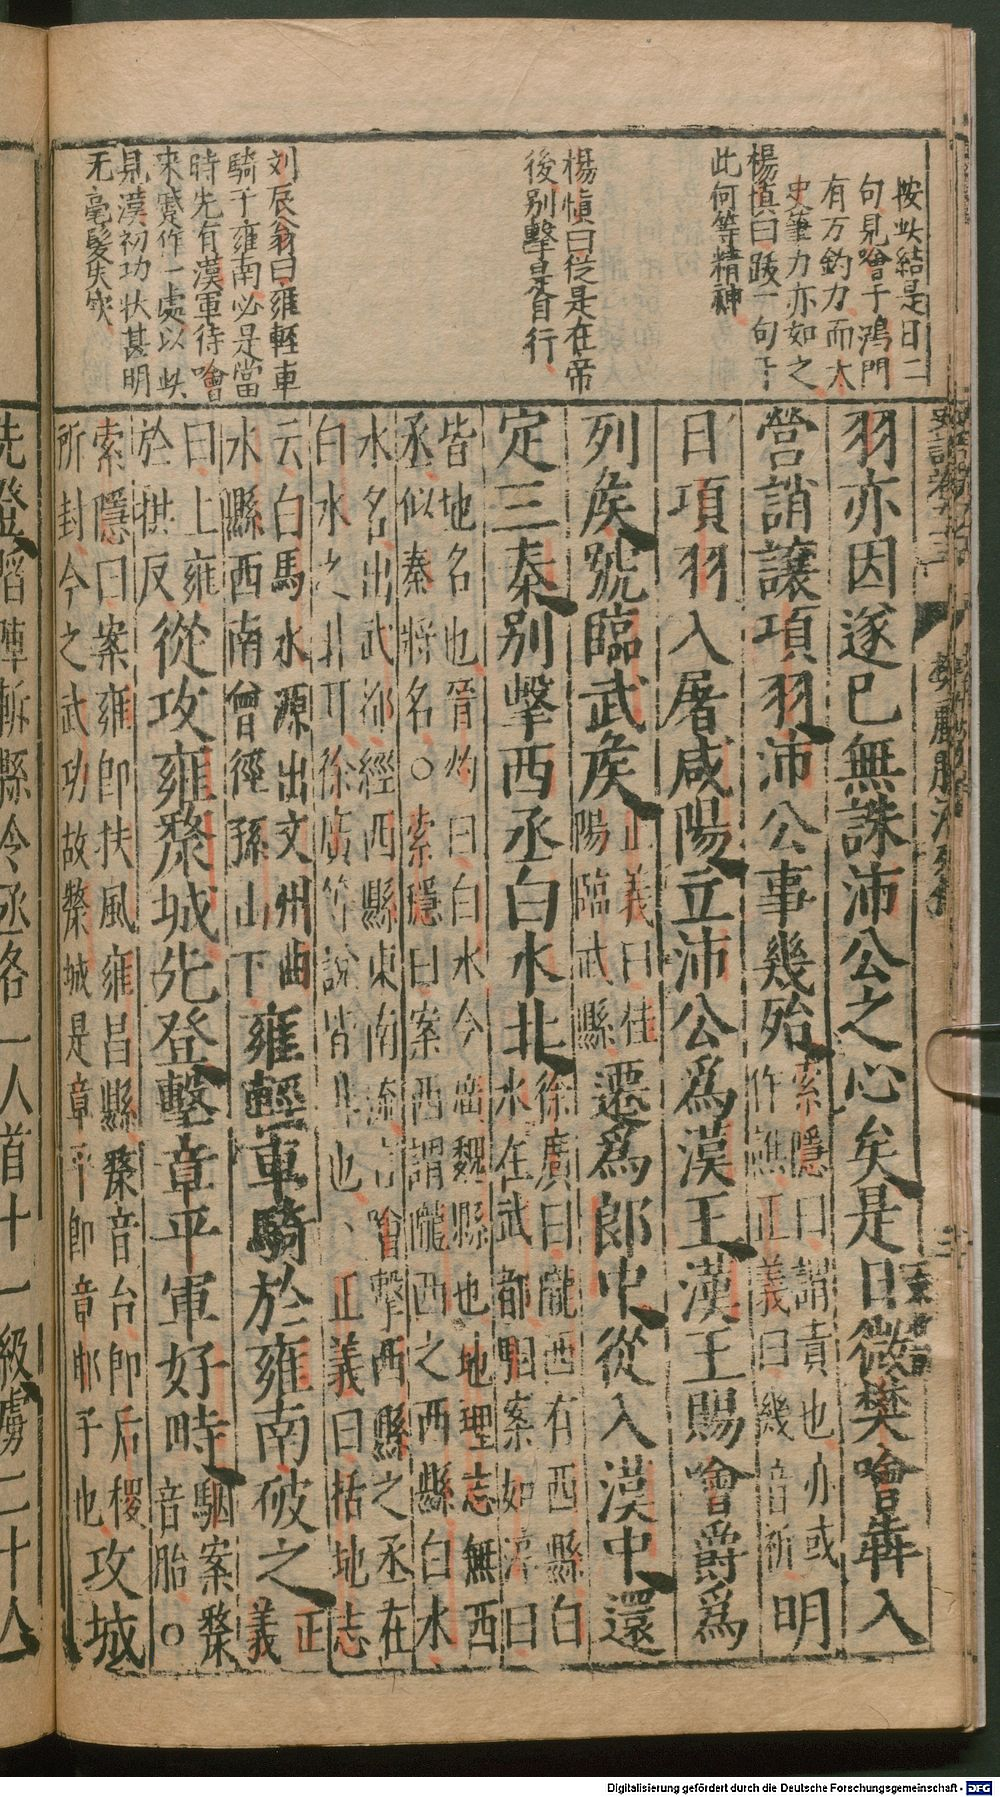 按此結是日二
句見噲于鴻門
有万鈞力而太
史筆力亦如之
楊慎曰跋一句于
此何等精神
楊慎曰從是在帝
後別擊是自行
刘辰翁曰雍輕車
騎于雍南必是當
時先有漢軍待噲
来寔作一處以此
見漢初功状甚明
无毫髮失实
羽亦因遂已無誅沛公之心矣是日微樊噲犇入
營誚讓項羽沛公事幾殆索隱曰謂責也亦或作譙正義曰幾音祈明
日項羽入屠咸陽立沛公爲漢王漢王賜噲爵爲
列矦號臨武矦正義曰桂陽臨武縣遷爲郎中從入漢中還
定三秦别擊西丞白水北徐廣曰隴西有西縣白水在武都駰案如淳曰
皆地名也晋灼曰白水今廣魏縣也地理志無西
丞似秦將名○索隱曰案西謂隴西之西縣白水
水名出武都經西縣東南流言噲擊西縣之丞在
白水之北耳徐廣等說皆非也、正義曰括地志
云白馬水源出文州曲水縣西南會徑孫山下雍輕車騎於雍南破之正義
曰上雍於拱反從攻雍斄城先登擊章平軍好畤駰案斄音胎○
索隱曰案雍即扶風雍昌縣斄音台即后稷所封今之武功故斄城是章平即章邯子也攻城
先登䧟陣斬縣令丞各一人首十一級虜二十人
Digitalisierung gefördert durch die Deutsche Forschungsgemeinschaft - DFG